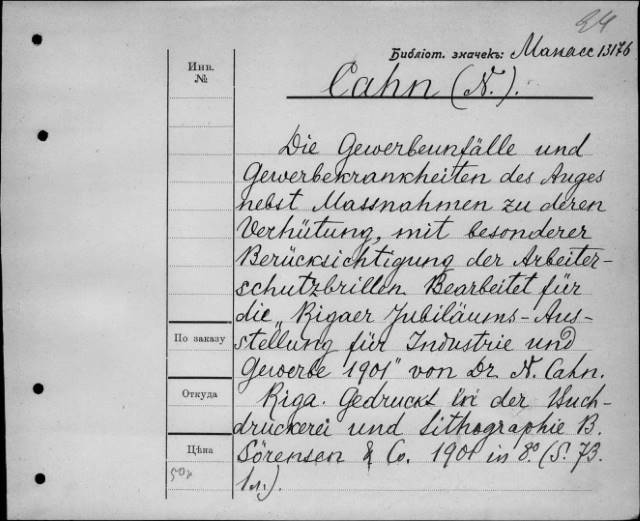 24
Библіот. значекъ: Манасс 13176
Инв. №
Cahn (N.).
Die Gewerbeunfälle und
Gewerbekrankheiten des Auges
nebst Massnahmen zu deren
Verhütung, mit besonderer
Berücksichtigung der Arbeiter-
schutzbrillen Bearbeitet für
die „Rigaer Jubiläums-Aus-
По заказу
stellung für Industrie und
Gewerbe 1901" von Dr. N. Cahn.
Откуда
Riga. Gedruckt in der Buch-
druckerei und Lithographie B.
Цѣна
Sörensen & Co. 1901 in 8° (S. 73.
50к
1 л.).